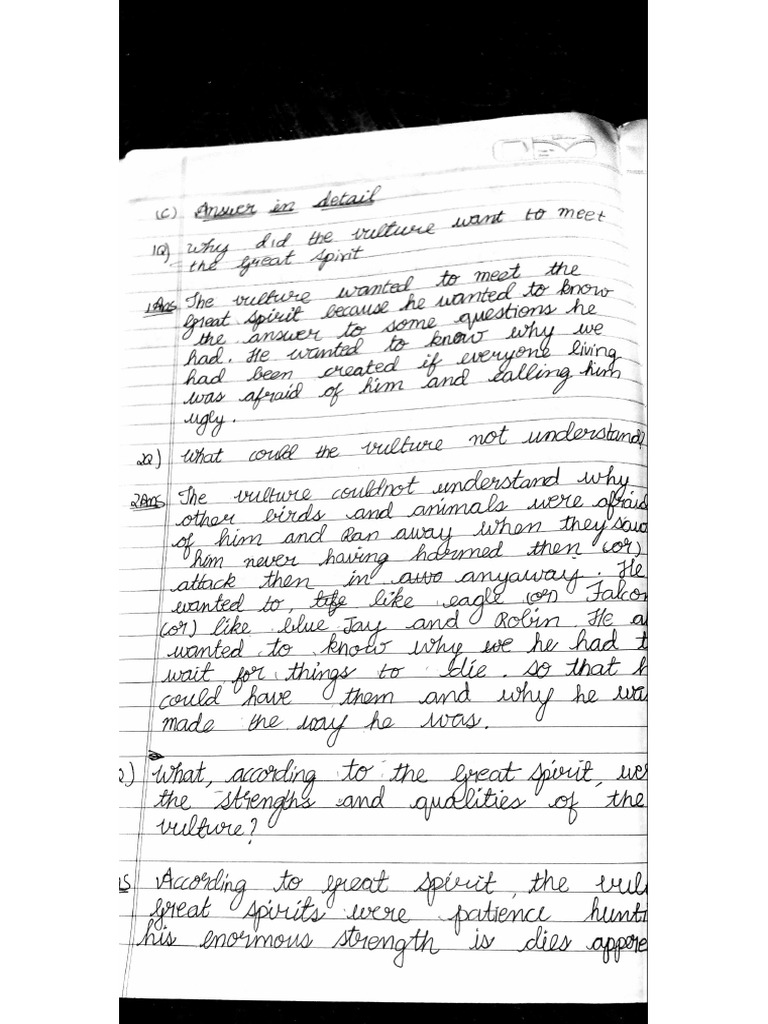 (C) Answer in detail
1Q) Why did the vulture want to meet
the great spirit
1Ans The vulture wanted to meet the
great spirit because he wanted to know
the answer to some questions he
had. He wanted to know why we
had been created if everyone living
was afraid of him and calling him
ugly.
2Q) What could the vulture not understand?
2Ans The vulture couldnot understand why
other birds and animals were afraid
of him and Ran away when they saw
him never having harmed then (or)
attack then in anyaway. He
wanted to, like eagle (or) Falcon
(or) like blue Jay and Robin He a
wanted to know why we he had t
wait for things to die. so that h
could have them and why he wa
made the way he was.
Q) What, according to the great spirit, wer
the strengths and qualities of the
vulture?
ns According to great spirit, the vul
great spirits were patience hunti
his enormous strength is dies appere